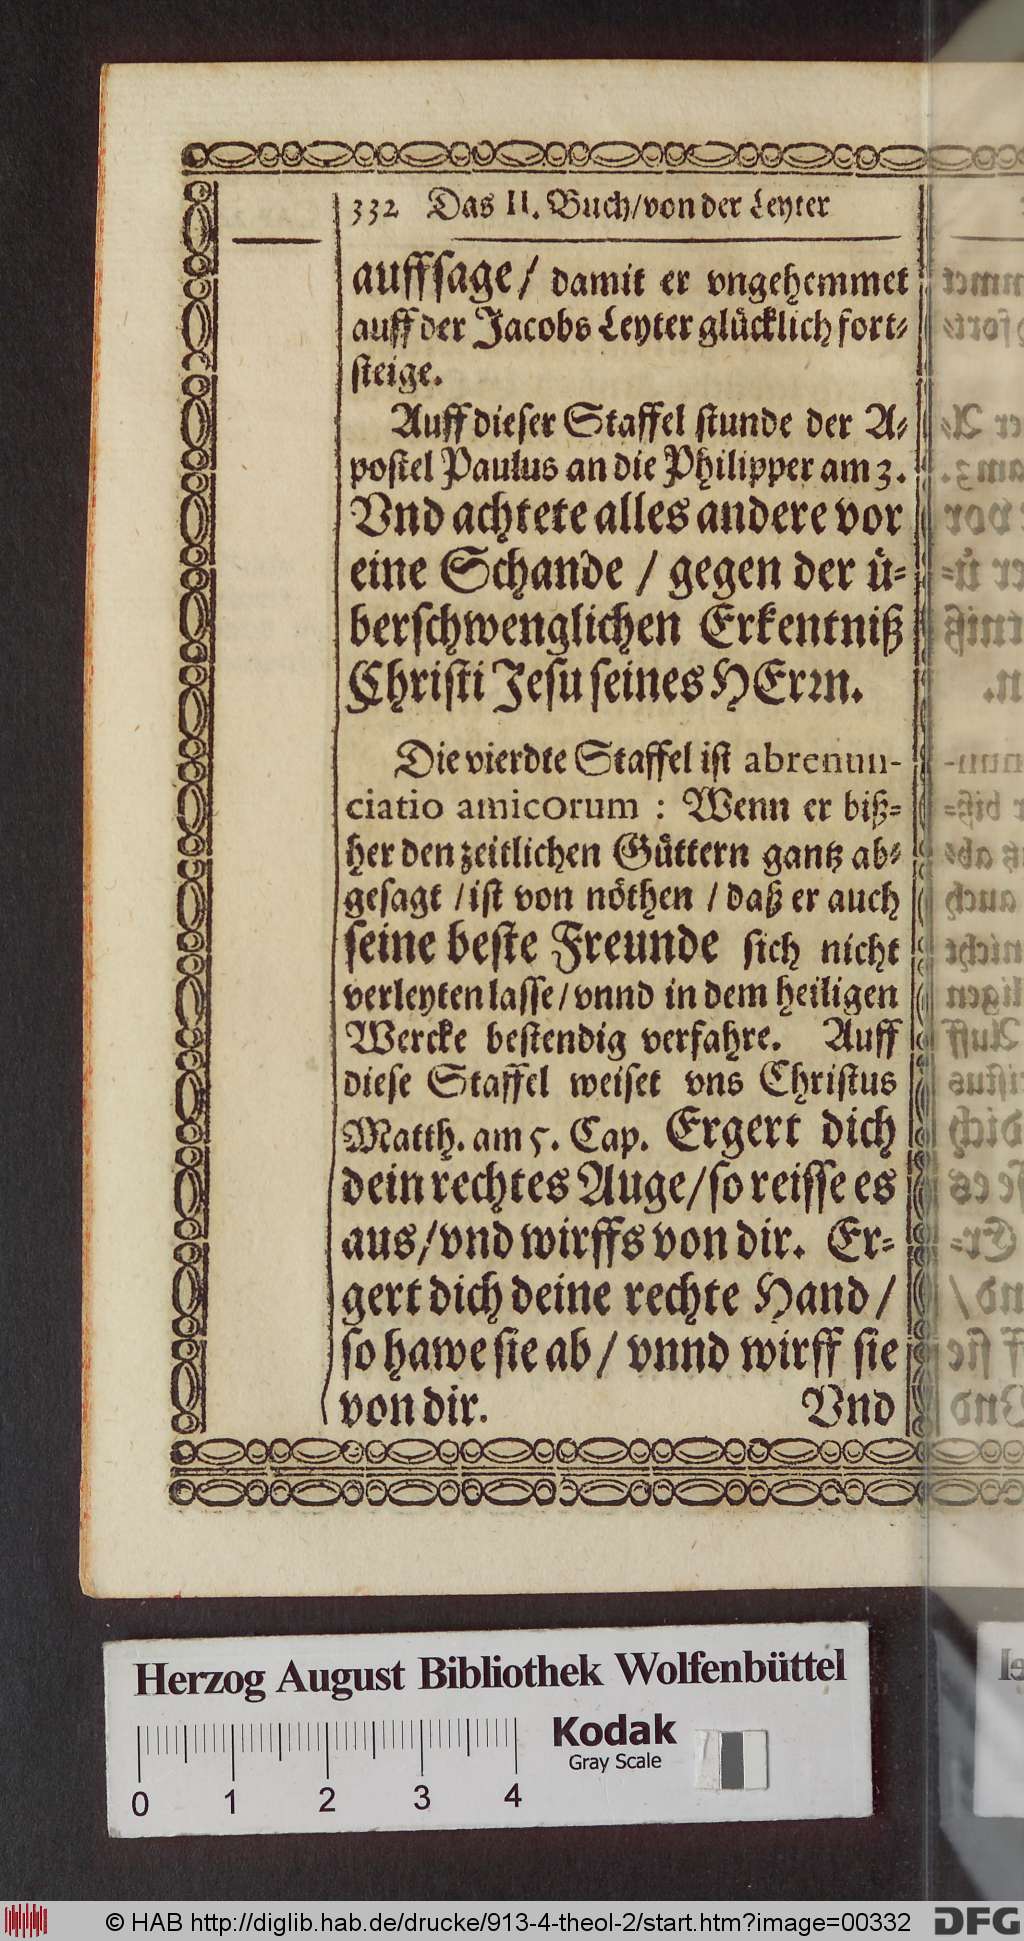 332 Das II. Buch/von der Leyter
auffsage/ damit er vngehemmet
auff der Jacobs Leyter glücklich fort-
steige.
Auff dieser Staffel stunde der A-
postel Paulus an die Philipper am 3.
Vnd achtete alles andere vor
eine Schande / gegen der ü-
berschwenglichen Erkentniß
Christi Jesu seines HErrn.
Die vierdte Staffel ist abrenun-
ciatio amicorum : Wenn er biß-
her den zeitlichen Güttern gantz ab-
gesagt /ist von nöthen / daß er auch
seine beste Freunde sich nicht
verleyten lasse/vnnd in dem heiligen
Wercke bestendig verfahre. Auff
diese Staffel weiset vns Christus
Matth. am 5. Cap. Ergert dich
dein rechtes Auge/so reisse es
aus/vnd wirffs von dir. Er-
gert dich deine rechte Hand/
so hawe sie ab/ vnnd wirff sie
von dir. Vnd
Herzog August Bibliothek Wolfenbüttel
Kodak
Gray Scale
0 1 2 3 4
© HAB http://diglib.hab.de/drucke/913-4-theol-2/start.htm?image=00332
DFG